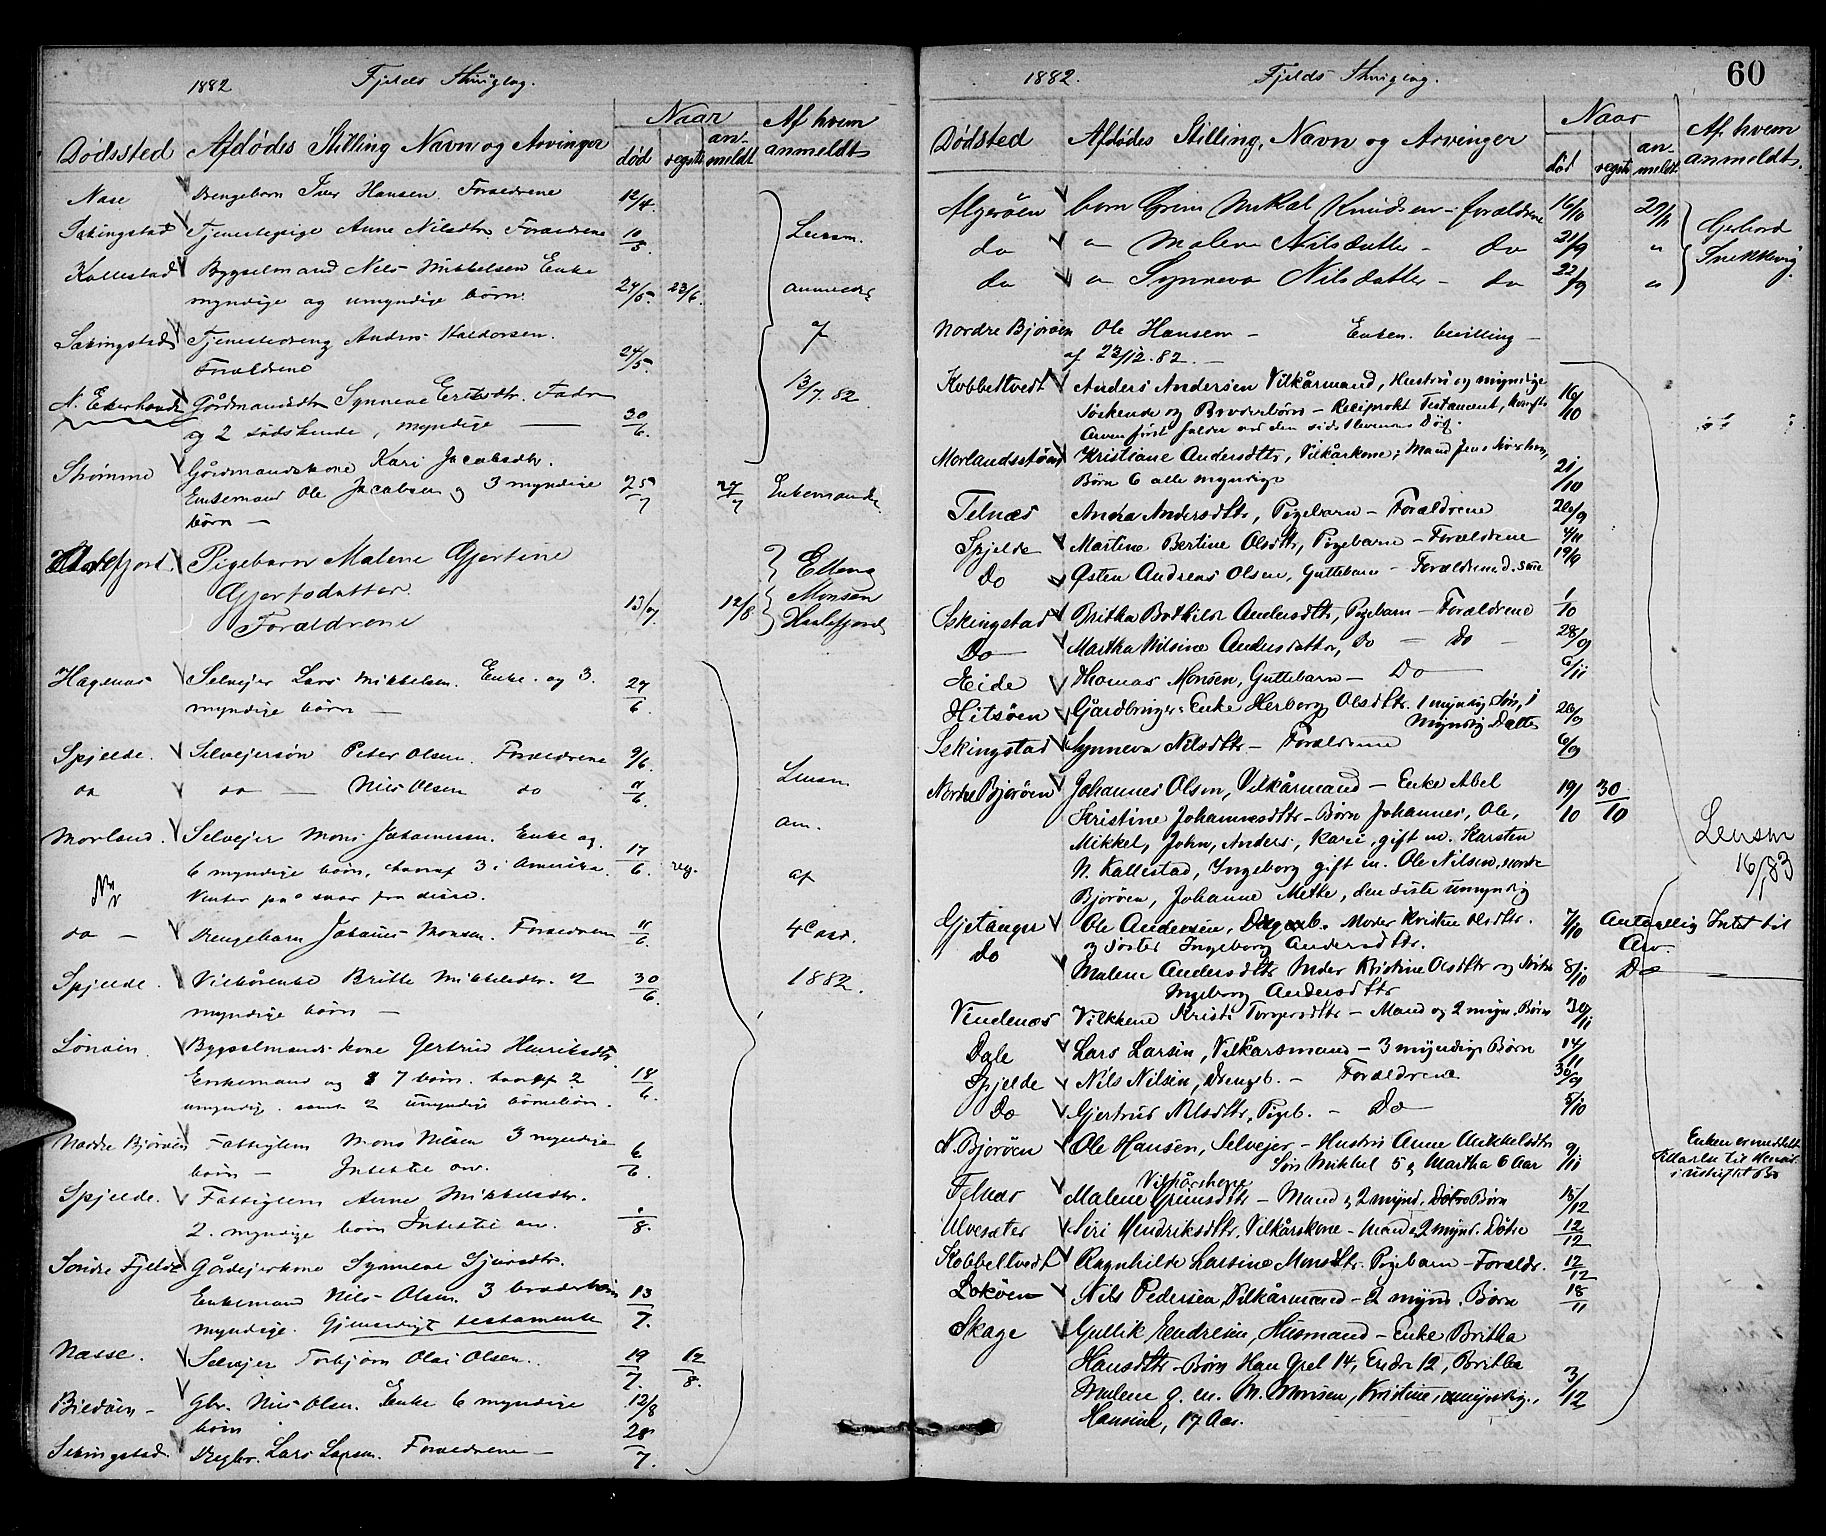 1882 Fjelds Thinglag.
Naar
Af hvem
Dødssted Afdødes Stilling Navn og Arvinger død registr an-meldt anmeldt
Nase Drengebarn Iver Hansen Forældrene 12/4.
Sekingstad Tjenestepige Anne Nilsdtr Forældrene 10/5 Lensm.
Kallestad Bygselmand Nils Mikkelsen Enke
myndige og umyndige børn. 24/5. 23/6. anmeldes
Sekingstad Tjenestedreng Anders Haldorsen.
Forældrene 24/5. 13/7 82
N. Ekerhovde Gårdmandsdtr Synneve Ericsdtr. Fader
og 2 sødskende, myndige — 30/6.
Strømme Gårdmandskone Kari Jacobsdtr.
Enkemand Ole Jacobsen og 3 myndige 25/7 27/7 Enkemanden
børn —
Pigebarn Malene Gjertine Elling
Gjertsdatter 13/7 12/8 Monsen
Forældrene
Hagenæs Selveier Lars Mikkelsen. Enke. og 3. 27/6.
myndige børn —
Spjelde. Selvejersøn Peter Olsen. Forældrene 9/6.
do do — Nils Olsen do 11/6. Lensm
Morland. Selvejer Mons Johannesen. Enke og am.
6 myndige børn, hvoraf 3 i Amerika. 17/6. reg. af
Venter på svar fra disse.
do — Drengebarn Johannes Monsen. Forældrene 11/6.
Spjelde. Vilkårenke Britte Mikkelsdtr. 2 30/6. 1882.
myndige børn —
Lønøen. Bygselmands kone Gertrud Henriksdtr.
Enkemand og 7 børn. hvoraf 2 18/6.
umyndig. samt 2 umyndige børnebørn.
Nordre Bjørøen Fattiglem Mons Nilsen 3 myndige 6/6.
børn — Intet at arv.
Spjelde. Fattiglem Anne Mikkelsdtr.
2. myndige børn 8.
Søndre Fjeld Gårdejerkone Synneve Sjursdtr.
Enkemand Nils Olsen. 3 broderbørn 13/7.
myndige. Gjensidigt testamente
Næsse. Selvejer Torbjørn Olai Olsen. 19/7. 12/8.
Bildøen — Gbr. Nils Olsen. Enke 6 myndige 12/8
børn
Sekingstad. Drgbr. Lars Larsen. Forældrene — 28/7.
1882. Fjelds Thinglag. 60
Naar
Af hvem
Dødsted Afdødes Stilling, Navn og Arvinger død registr an-meldt anmeldt.
Algerøen barn Grim Mikal Knudsen — forældrene 16/10 29/11 Gjehord
do " Malene Nilsdatter — do 21/9 " Snekkevig
do " Synneva Nilsdatter — do 22/9 "
Nordre Bjørøen Ole Hansen — Enken bevilling —
af 23/12.82. —
Kobbeltvedt Anders Andersen Vilkårmand, Hustru og myndige 16/10
Søskende og Broderbørn — Reciprokt Testament, hvorefter
Arven først falder ved den sidstlevendes Død.
Morlandsstøen Kristiane Andersdtr, Vilkårkone; Mand Jens
Børn 6 alle myndige 21/10
Telnæs Andrea Andersdtr, Pigebarn — Forældrene 20/9
Spjelde Martine Bertine Olsdtr, Pigebarn — Forældrene 4/11
Do Østen Andreas Olsen, Guttebarn — Forældrene d. som 19/9
Sekingstad Britha Bothilde Andersdtr, Pigebarn — Forældrene 1/10
Do Martha Nilsine Andersdatter, Do — Do — 28/9
Eide Thomas Monsen, Guttebarn — Do 6/11
Hitsøen Gårdbruger Enke Herborg Olsdtr. 1 myndig Søn, 1 20/9
myndig Datter
Sekingstad Synneva Nilsdtr — Forældrene 6/9
Nordre Bjørøen Johannes Olsen, Vilkårmand — Enke Abel 19/10 30/10
Kristine Johannesdtr — Børn Johannes, Ole,
Mikkel, John, Anders, Kari, gift m. Karsten
N. Kallestad, Ingeborg gift m. Ole Nilsen, nordre
Bjørøen, Johanne Mette, den siste umyndig
Lensm
16/1 83
Gjetanger Ole Andersen, Drengeb. Moder Kristine Olsdtr. 7/10 Antagelig Intet til
Do og Søster Ingeborg Andersdtr. Arv
Malene Andersdtr Moder Kristine Olsdtr og Søster 8/10 Do
Ingeborg Andersdtr
Vindenæs Vilkkone Kristi Torgersdtr — Mand og 2 mynd. Børn 30/11
Dale Lars Larsen, Vilkårsmand — 3 myndige Børn 14/11
Spjelde Nils Nilsen, Drengeb. — Forældrene 30/9
Do Gjertrud Nilsdtr, Pigeb. — Do 5/10
N. Bjørøen Ole Hansen, Selvejer — Hustru Anne Mikkelsdtr 9/11 Enken er meddelt
Søn Mikkel 5 og Martha 6 Aar Tilladelse til Hensid.
i uskiftet Bo
Vilkårskone
Telnæs Malene Grimsdtr — Mand og 2 mynd. Børn 15/12
Ulvesæter Siri Hendriksdtr, Vilkårskone — Mand og 2 mynd. Døtre 12/12
Kobbeltvedt Ragnhilde Larsine Monsdtr. Pigebarn — Forældr. 12/12
Lokøen Nils Pedersen, Vilkårmand — 2 mynd. Børn 18/11
Skage Gullik Endresen, Husmand — Enke Britha
Hansdtr — Børn Hans Grel 14, Endre 12, Britha 3/12
Malene g. m. M. Monsen, Kristine, umyndig.,
Hansine, 17 Aar.